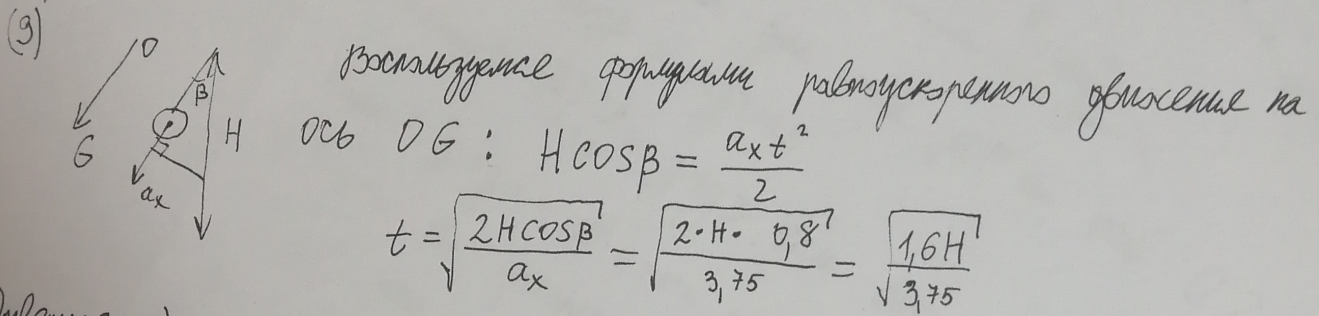 (9)
Воспользуемся формулами равноускоренного движения на
ось OG: H cosβ = aₓt²/2
t = √(2Hcosβ/aₓ) = √(2·H·0,8/3,75) = √(1,6H/3,75)
O
β
H
G
aₓ